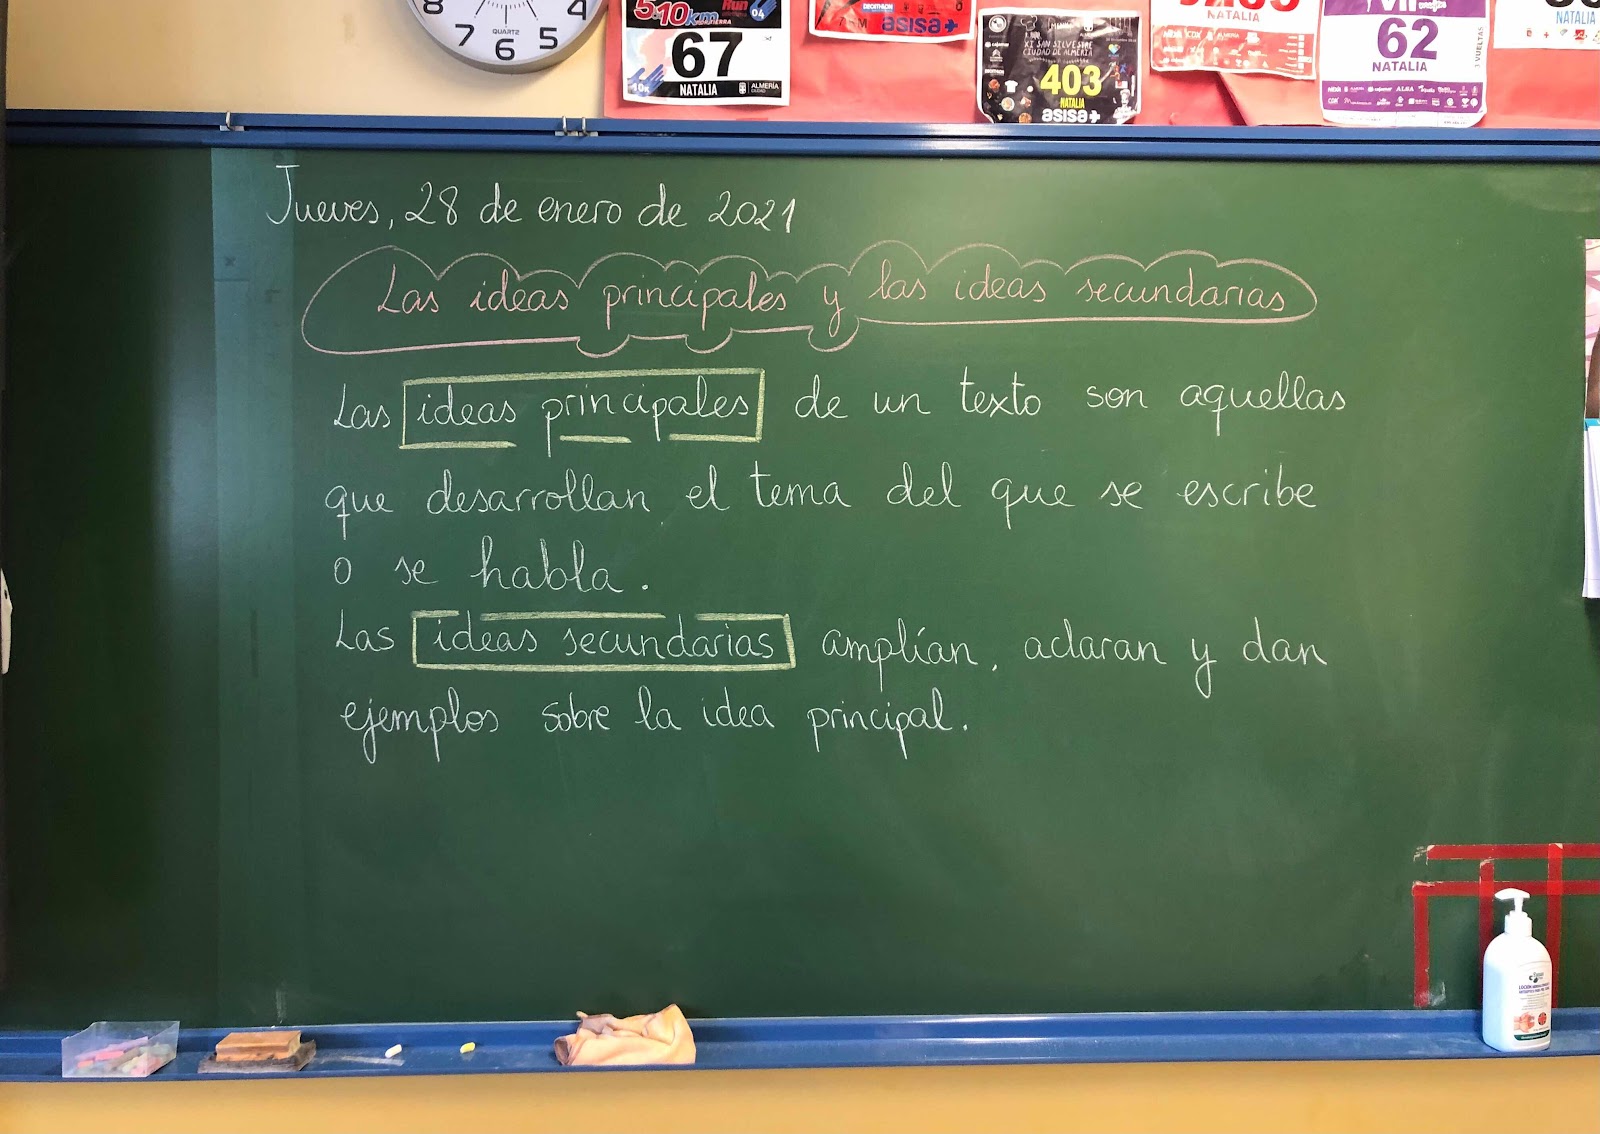 8 7 6 5 4
QUARTZ
5 10km Run 04
67
10K NATALIA ALMERÍA CIUDAD
DECATHLON
asisa+
XI SAN SILVESTRE
CIUDAD DE ALMERÍA
403
NATALIA
asisa+
NATALIA
62
NATALIA
3 VUELTAS
NATALIA
Jueves, 28 de enero de 2021
Las ideas principales y las ideas secundarias
Las ideas principales de un texto son aquellas
que desarrollan el tema del que se escribe
o se habla.
Las ideas secundarias amplían, aclaran y dan
ejemplos sobre la idea principal.